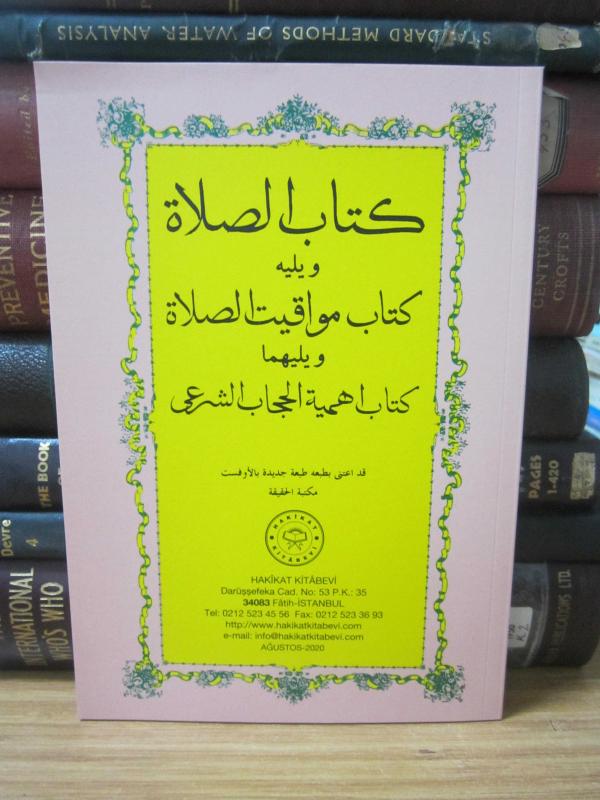 STANDARD METHODS OF WATER ANALYSIS
كتاب الصلاة
ويليه
كتاب مواقيت الصلاة
ويليهما
كتاب اهمية الحجاب الشرعى
قد اعتنى بطبعه طبعة جديدة بالأوفست
مكتبة الحقيقة
HAKÎKAT
KİTÂBEVİ
HAKÎKAT KİTÂBEVİ
Darüşşefeka Cad. No: 53 P.K.: 35
34083 Fâtih-İSTANBUL
Tel: 0212 523 45 56 Fax: 0212 523 36 93
http://www.hakikatkitabevi.com
e-mail: info@hakikatkitabevi.com
AĞUSTOS-2020
PREVENTIVE
MEDICINE
CENTURY
CROFTS
THE BOOK
PAGES
1-420
Devre
4
INTERNATIONAL
WHO'S WHO
PUBLICATIONS LTD.